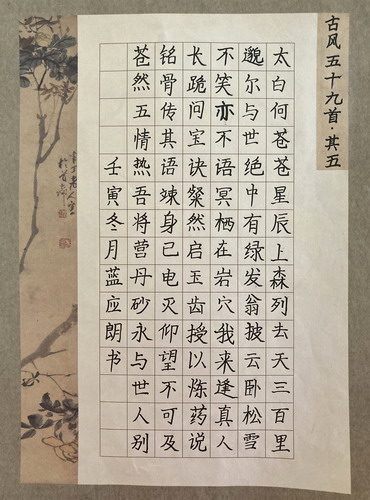 古风五十九首·其五
太白何苍苍星辰上森列去天三百里
邈尔与世绝中有绿发翁披云卧松雪
不笑亦不语冥栖在岩穴我来逢真人
长跪问宝诀粲然启玉齿授以炼药说
铭骨传其语竦身已电灭仰望不可及
苍然五情热吾将营丹砂永与世人别
壬寅冬月蓝应朗书